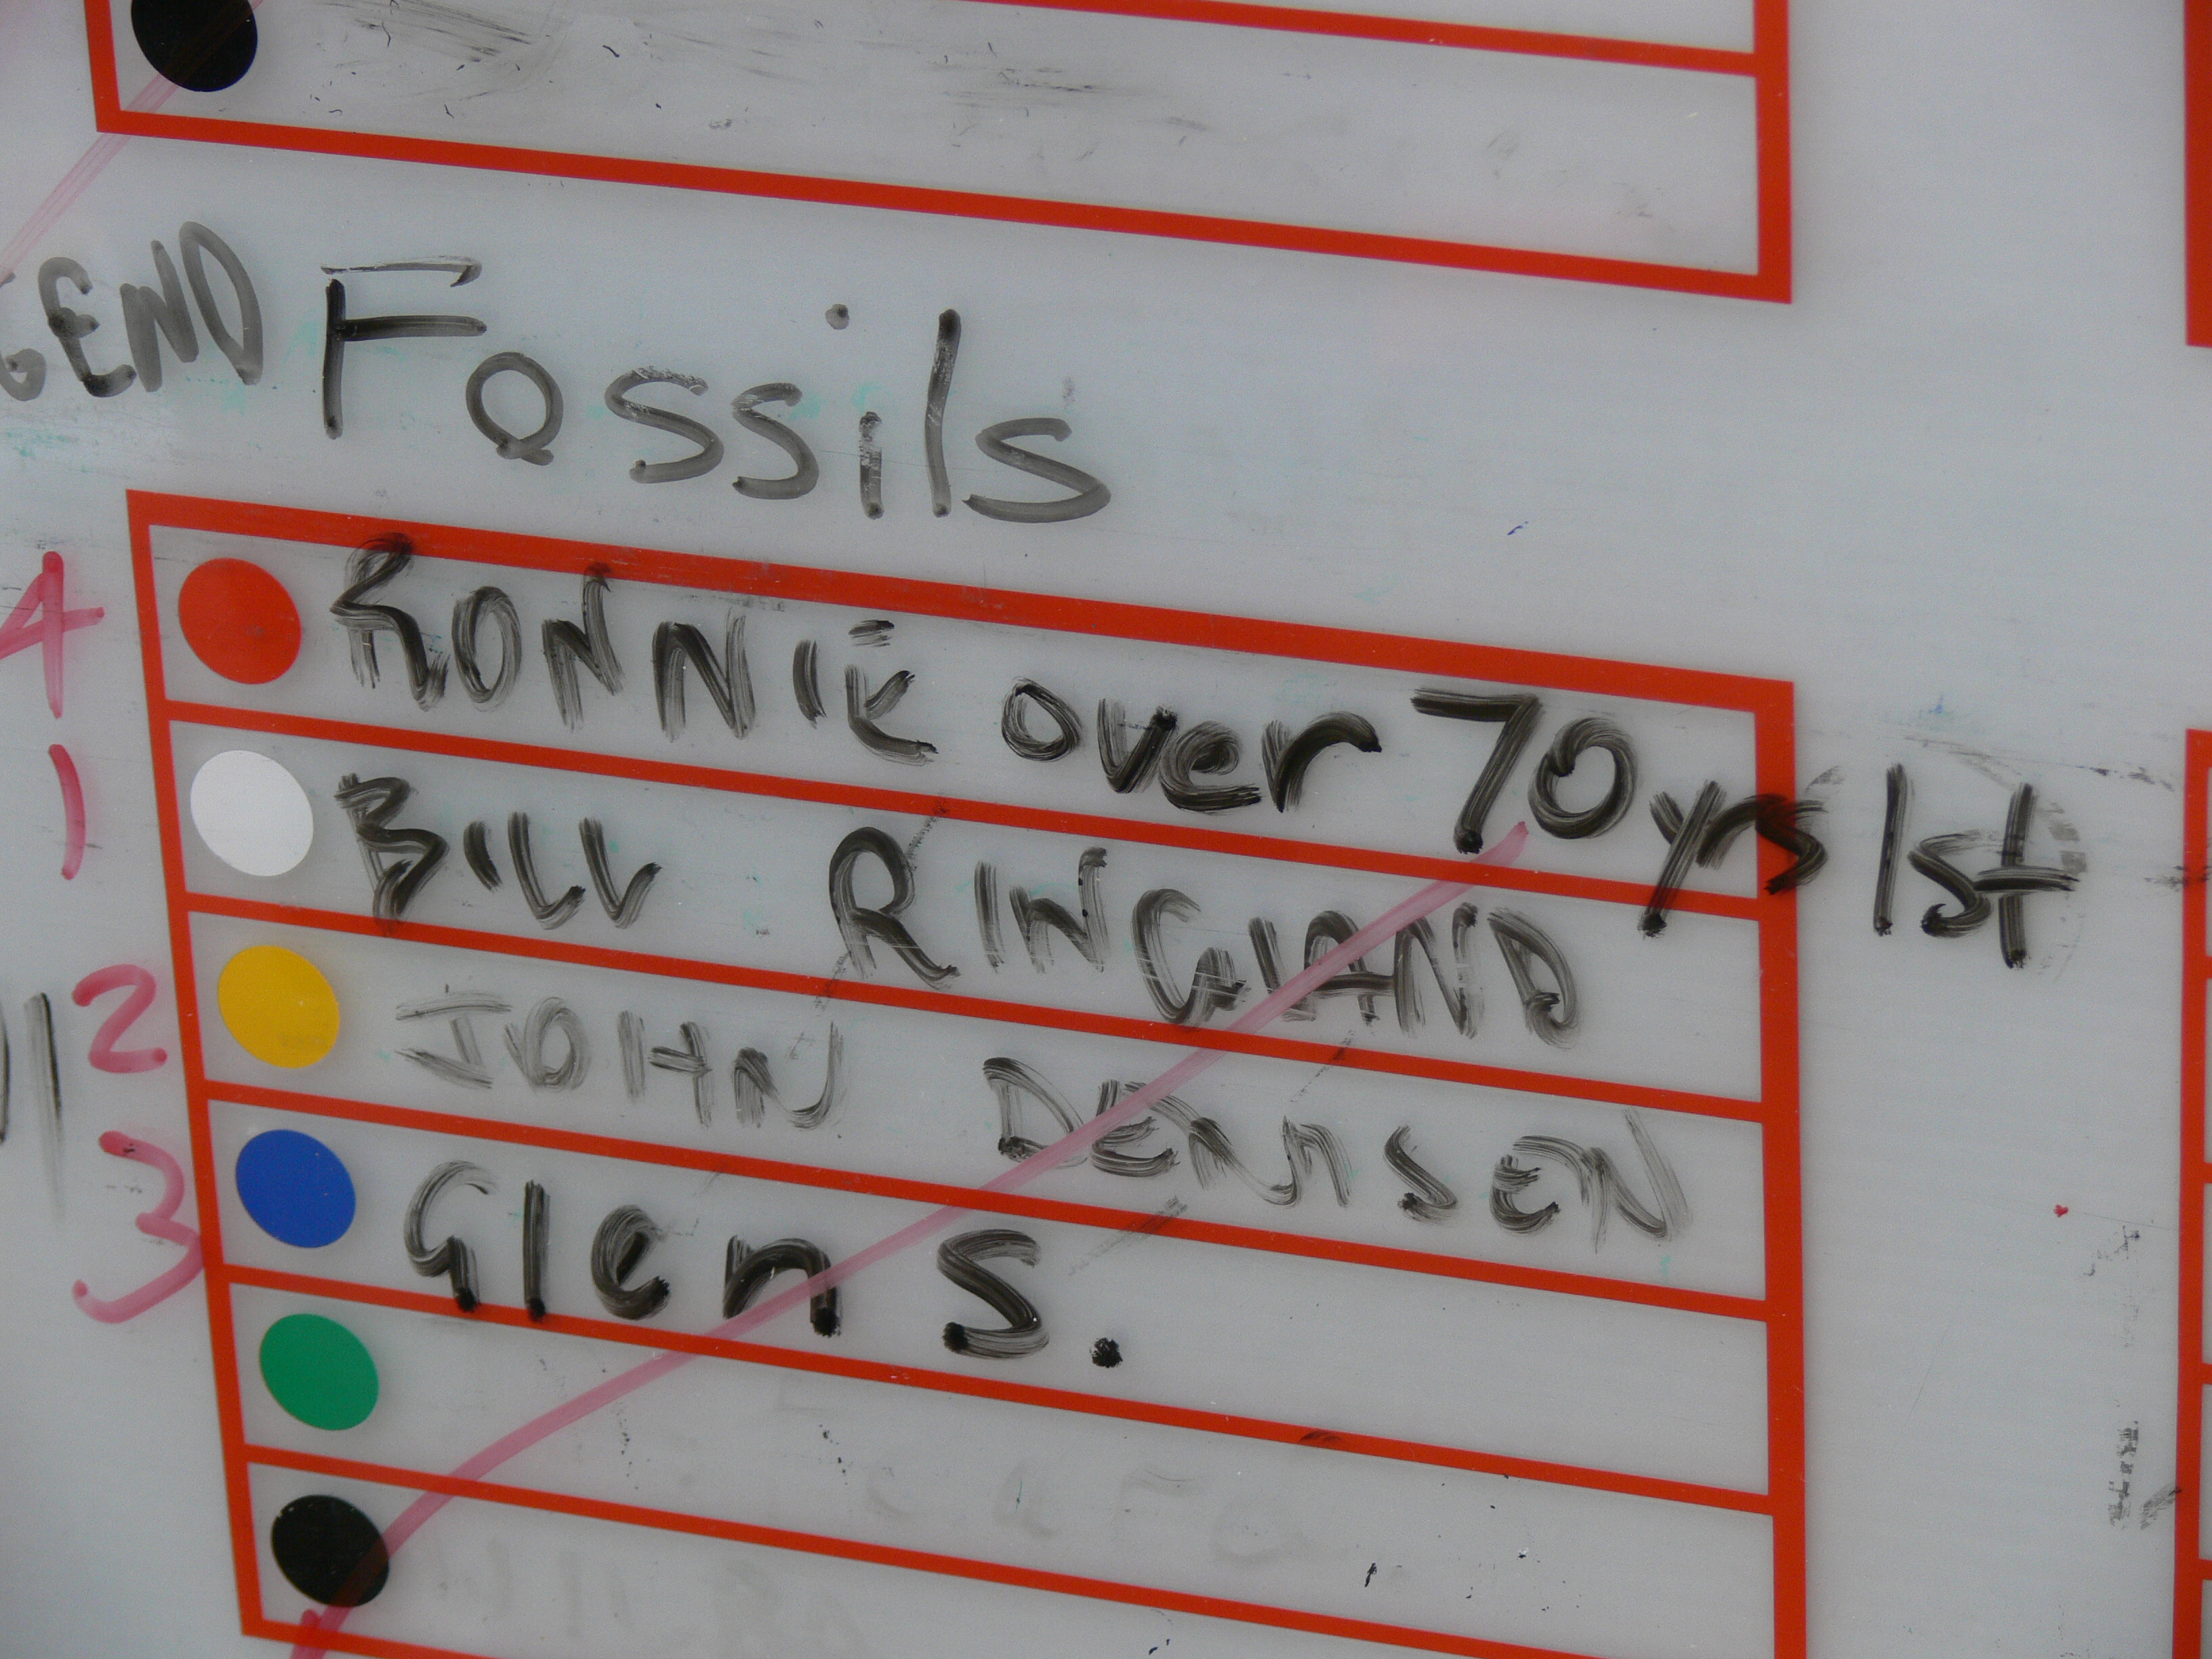 GEND Fossils
4 RONNIE over 70yrs 1st
1 BILL RINGLAND
2 JOHN DENSEN
3 Glen S.